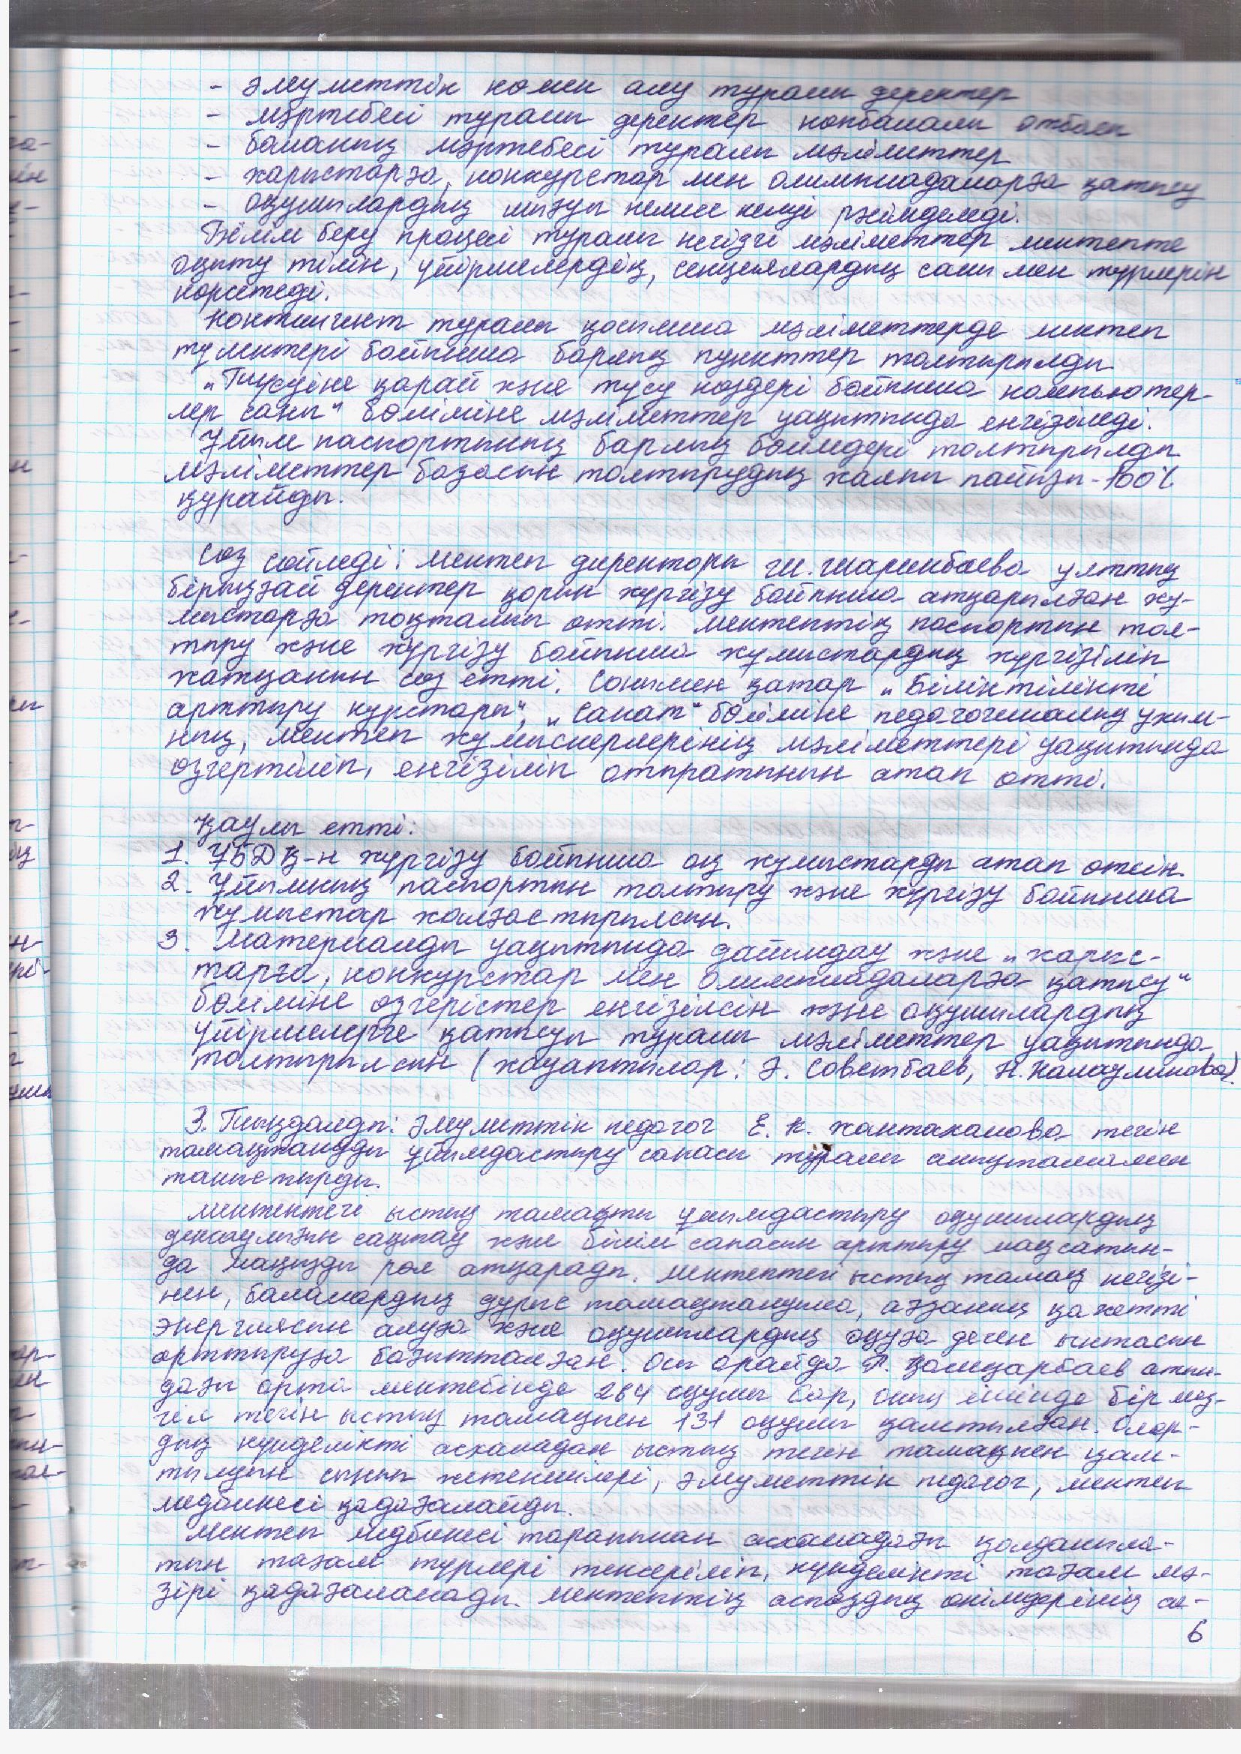 - Әлуметтік көмек алу туралы деректер
- мәртебесі туралы деректер көпбалалы отбасы
- баланың мәртебесі туралы мәліметтер
- жарыстарға, конкурстар мен олимпиадаларға қатысу
- оқушылардың шығуы немесе келуі рәсімделеді.
Білім беру процесі туралы негізгі мәліметтер мектепте
оқыту тілін, үйірмелердің, секциялардың саны мен түрлерін
көрсетеді.
Контингент туралы қосымша мәліметтерде мектеп
түлектері бойынша барлық пункттер толтырылды.
"Түсуіне қарай және түсу көздері бойынша компьютер-
лер саны" бөліміне мәліметтер уақытында енгізіледі.
Ұйым паспортының барлық бөлімдері толтырылды
мәліметтер базасын толтырудың жалпы пайызы - 100%
құрайды.
Сөз сөйледі: мектеп директоры Ш. Шарипбаева ұлттық
бірыңғай деректер қорын жүргізу бойынша атқарылған жұ-
мыстарға тоқталып өтті. Мектептің паспортын тол-
тыру және жүргізу бойынша жұмыстардың жүргізіліп
жатқанын сөз етті. Сонымен қатар "Біліктілікті
арттыру курстары", "Санат" бөліміне педагогикалық ұжым-
ның, мектеп жұмыскерлерінің мәліметтері уақытында
өзгертіліп, енгізіліп отыратынын атап өтті.
Қаулы етті:
1. ҰБДҚ-н жүргізу бойынша оң жұмыстарды атап өтсін.
2. Ұйымның паспортын толтыру және жүргізу бойынша
жұмыстар жалғастырылсын.
3. Материалды уақытында дайындау және "жарыс-
тарға, конкурстар мен олимпиадаларға қатысу"
бөліміне өзгерістер енгізілсін және оқушылардың
үйірмелерге қатысуы туралы мәліметтер уақытында
толтырылсын (жауаптылар: Ә. Советбаев,
3. Тыңдалды: Әлуметтік педагог Е. К. тегін
тамақтануды ұйымдастыру сапасы туралы анықтамамен
таныстырды.
Мектептегі ыстық тамақты ұйымдастыру оқушылардың
денсаулығын сақтау және білім сапасын арттыру мақсатын-
да маңызды рөл атқарады. Мектептегі ыстық тамақ негізі-
нен, балалардың дұрыс тамақтануына, ағзаның қажетті
энергиясын алуға және оқушылардың оқуға деген ынтасын
арттыруға бағытталған. Осы орайда атын-
дағы орта мектебінде 284 оқушы бар, оның ішінде бір мез-
гіл тегін ыстық тамақпен 131 оқушы қамтылған. Олар-
дың күнделікті асханадан ыстық тегін тамақпен қам-
тылуын сынып жетекшілері, әлуметтік педагог, мектеп
медбикесі қадағалайды.
Мектеп медбикесі тарапынан асханадағы қолданыла-
тын тағам түрлері тексеріліп, күнделікті тағам мә-
зірі қадағаланады. Мектептің аспаздық өнімдерінің са-
6